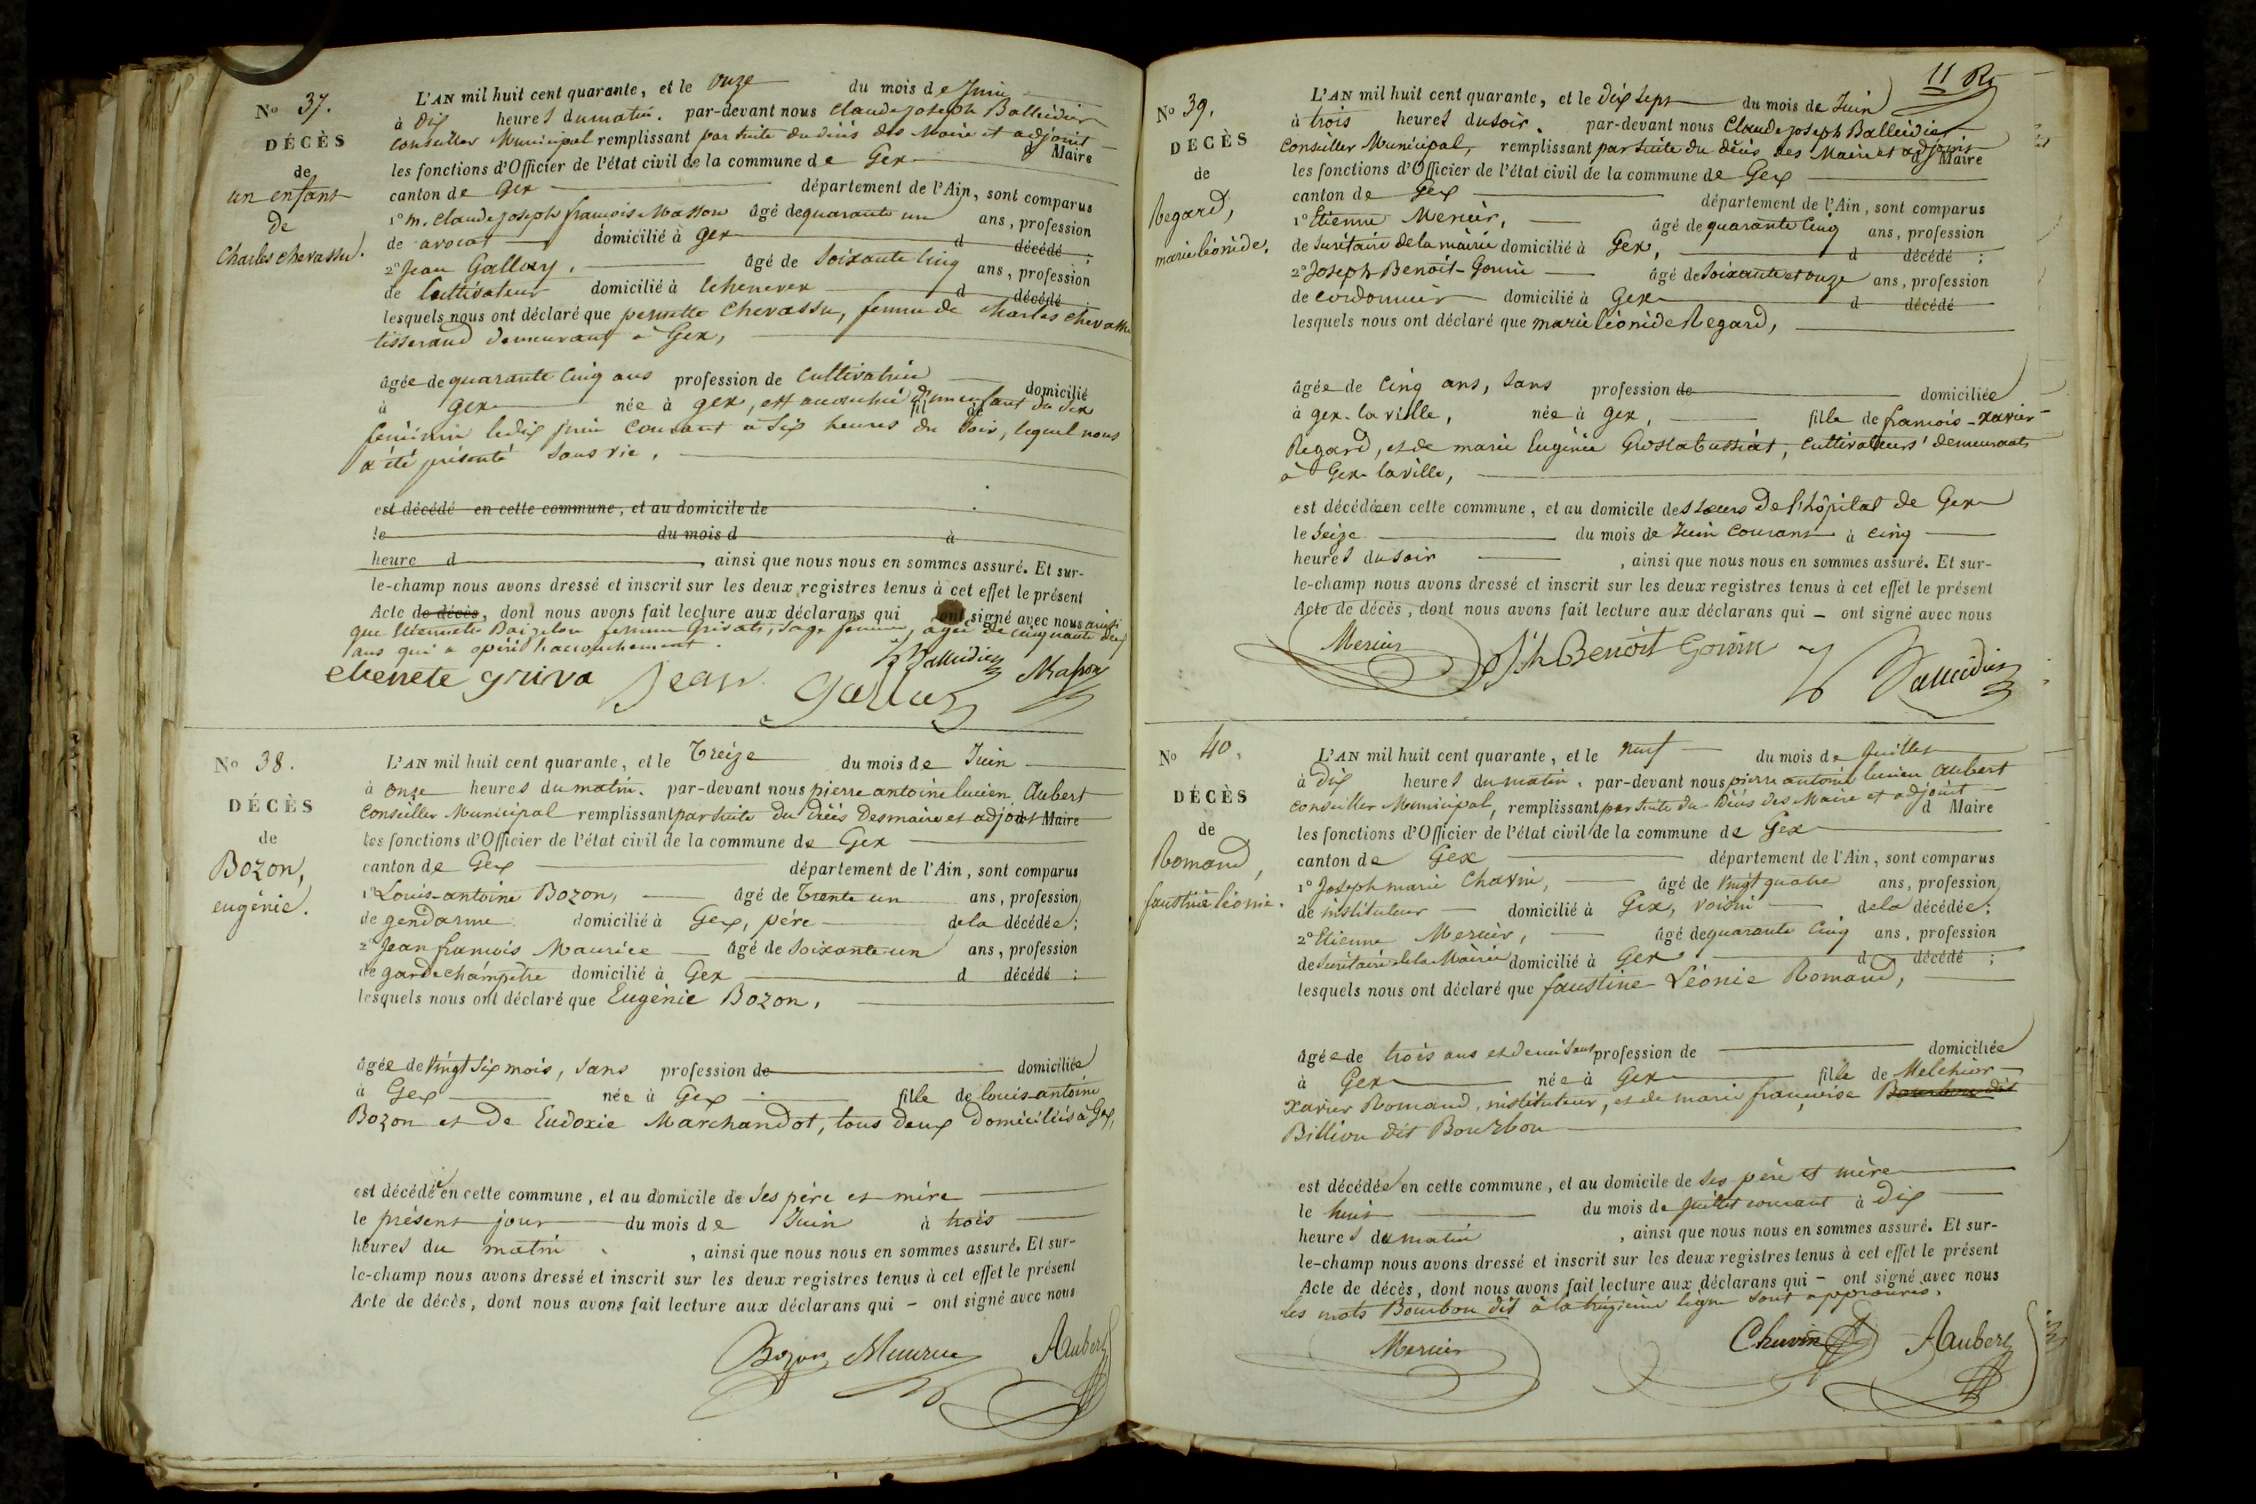 No 37.
DÉCÈS
de
un enfant
de
Charles chevassu.
L'AN mil huit cent quarante, et le onze du mois de Juin
à dix heures du matin. par-devant nous Claude joseph Balleidier
conseiller Municipal remplissant par suite du décès des Maire et adjoint d Maire
les fonctions d'Officier de l'état civil de la commune de Gex
canton de Gex département de l'Ain, sont comparus
1o m. Claude joseph françois Masson âgé de quarante un ans, profession
de avocat domicilié à Gex d décédé ;
2o Jean Gallay, âgé de soixante cinq ans, profession
de Cultivateur domicilié à Echenevex d décédé
lesquels nous ont déclaré que pernette Chevassu, femme de Charles Chevassu
tisserand demeurant à Gex,
âgée de quarante cinq ans profession de cultivatrice domicilié
à Gex née à Gex, est accouchée d'un enfant du sexe fil de
féminin le dix juin courant à six heures du soir, lequel nous
a été présenté sans vie.
est décédé en cette commune, et au domicile de
le du mois d à
heure d , ainsi que nous nous en sommes assuré. Et sur-
le-champ nous avons dressé et inscrit sur les deux registres tenus à cet effet le présent
Acte de décès, dont nous avons fait lecture aux déclarans qui ont signé avec nous ainsi
que femme Grivat, sage femme, agée de cinquante
ans qui a opéré l'accouchement.
etienete griva Jean Gallay Balleidier Masson
No 38.
DÉCÈS
de
Bozon,
eugénie.
L'AN mil huit cent quarante, et le Treize du mois de Juin
à onze heures du matin. par-devant nous pierre antoine lucien Aubert
Conseiller Municipal remplissant par suite du décès des maire et adjoint d Maire
les fonctions d'Officier de l'état civil de la commune de Gex
canton de Gex département de l'Ain, sont comparus
1o Louis-antoine Bozon, âgé de Trente un ans, profession
de gendarme domicilié à Gex, père de la décédée ;
2o Jean françois Maurice âgé de soixante un ans, profession
de garde champêtre domicilié à Gex d décédé ;
lesquels nous ont déclaré que Eugénie Bozon,
âgée de vingt six mois, sans profession de domiciliée
à Gex née à Gex fille de louis-antoine
Bozon et de Eudoxie Marchandot, tous deux domiciliés à Gex,
est décédée en cette commune, et au domicile de ses père et mère
le présent jour du mois de Juin à trois
heures du matin , ainsi que nous nous en sommes assuré. Et sur-
le-champ nous avons dressé et inscrit sur les deux registres tenus à cet effet le présent
Acte de décès, dont nous avons fait lecture aux déclarans qui – ont signé avec nous
Bozon Maurice Aubert
11 Rg
No 39.
DÉCÈS
de
Regard,
marie léonide.
L'AN mil huit cent quarante, et le dix sept du mois de Juin
à trois heures du soir. par-devant nous Claude joseph Balleidier
Conseiller Municipal, remplissant par suite du décès des Maire et adjoint d Maire
les fonctions d'Officier de l'état civil de la commune de Gex
canton de Gex département de l'Ain, sont comparus
1o Etienne Mercier, âgé de quarante cinq ans, profession
de secrétaire de la mairie domicilié à Gex, d décédé ;
2o Joseph Benoît-Gonin âgé de soixante et onze ans, profession
de cordonnier domicilié à Gex d décédé
lesquels nous ont déclaré que marie léonide Regard,
âgée de cinq ans, sans profession de domiciliée
à gex-la-ville, née à gex, fille de françois-xavier
Regard, et de marie Eugénie Grostabussiat, cultivateurs demeurants
à Gex-la ville,
est décédée en cette commune, et au domicile des sœurs de l'hôpital de Gex
le seize du mois de Juin courant à cinq
heures du soir , ainsi que nous nous en sommes assuré. Et sur-
le-champ nous avons dressé et inscrit sur les deux registres tenus à cet effet le présent
Acte de décès, dont nous avons fait lecture aux déclarans qui – ont signé avec nous
Mercier Jh Benoît Gonin Balleidier
No 40.
DÉCÈS
de
Romand,
faustine léonie.
L'AN mil huit cent quarante, et le neuf du mois de Juillet
à dix heures du matin. par-devant nous pierre antoine lucien Aubert
conseiller Municipal, remplissant par suite du décès des Maire et adjoint d Maire
les fonctions d'Officier de l'état civil de la commune de Gex
canton de Gex département de l'Ain, sont comparus
1o Joseph marie Chavin, âgé de vingt quatre ans, profession
de instituteur domicilié à Gex, voisin de la décédée ;
2o Etienne Mercier, âgé de quarante cinq ans, profession
de secrétaire de la Mairie domicilié à Gex d décédé ;
lesquels nous ont déclaré que faustine Léonie Romand,
âgée de trois ans et demi sans profession de domiciliée
à Gex née à Gex fille de Melchior
xavier Romand, instituteur, et de marie françoise Bourbon dit
Billion dit Bourbon
est décédée en cette commune, et au domicile de ses père et mère
le huit du mois de juillet courant à dix
heures du matin , ainsi que nous nous en sommes assuré. Et sur-
le-champ nous avons dressé et inscrit sur les deux registres tenus à cet effet le présent
Acte de décès, dont nous avons fait lecture aux déclarans qui – ont signé avec nous
les mots Bourbon dit à la treizième ligne sont approuvés.
Mercier Chavin Aubert